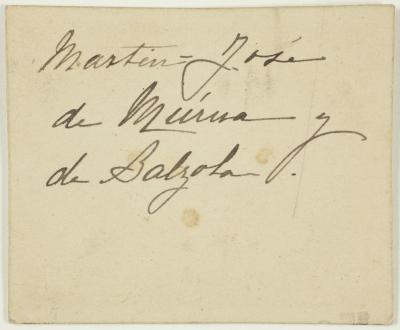 Martin=José
de Múrua y
de Balzola.